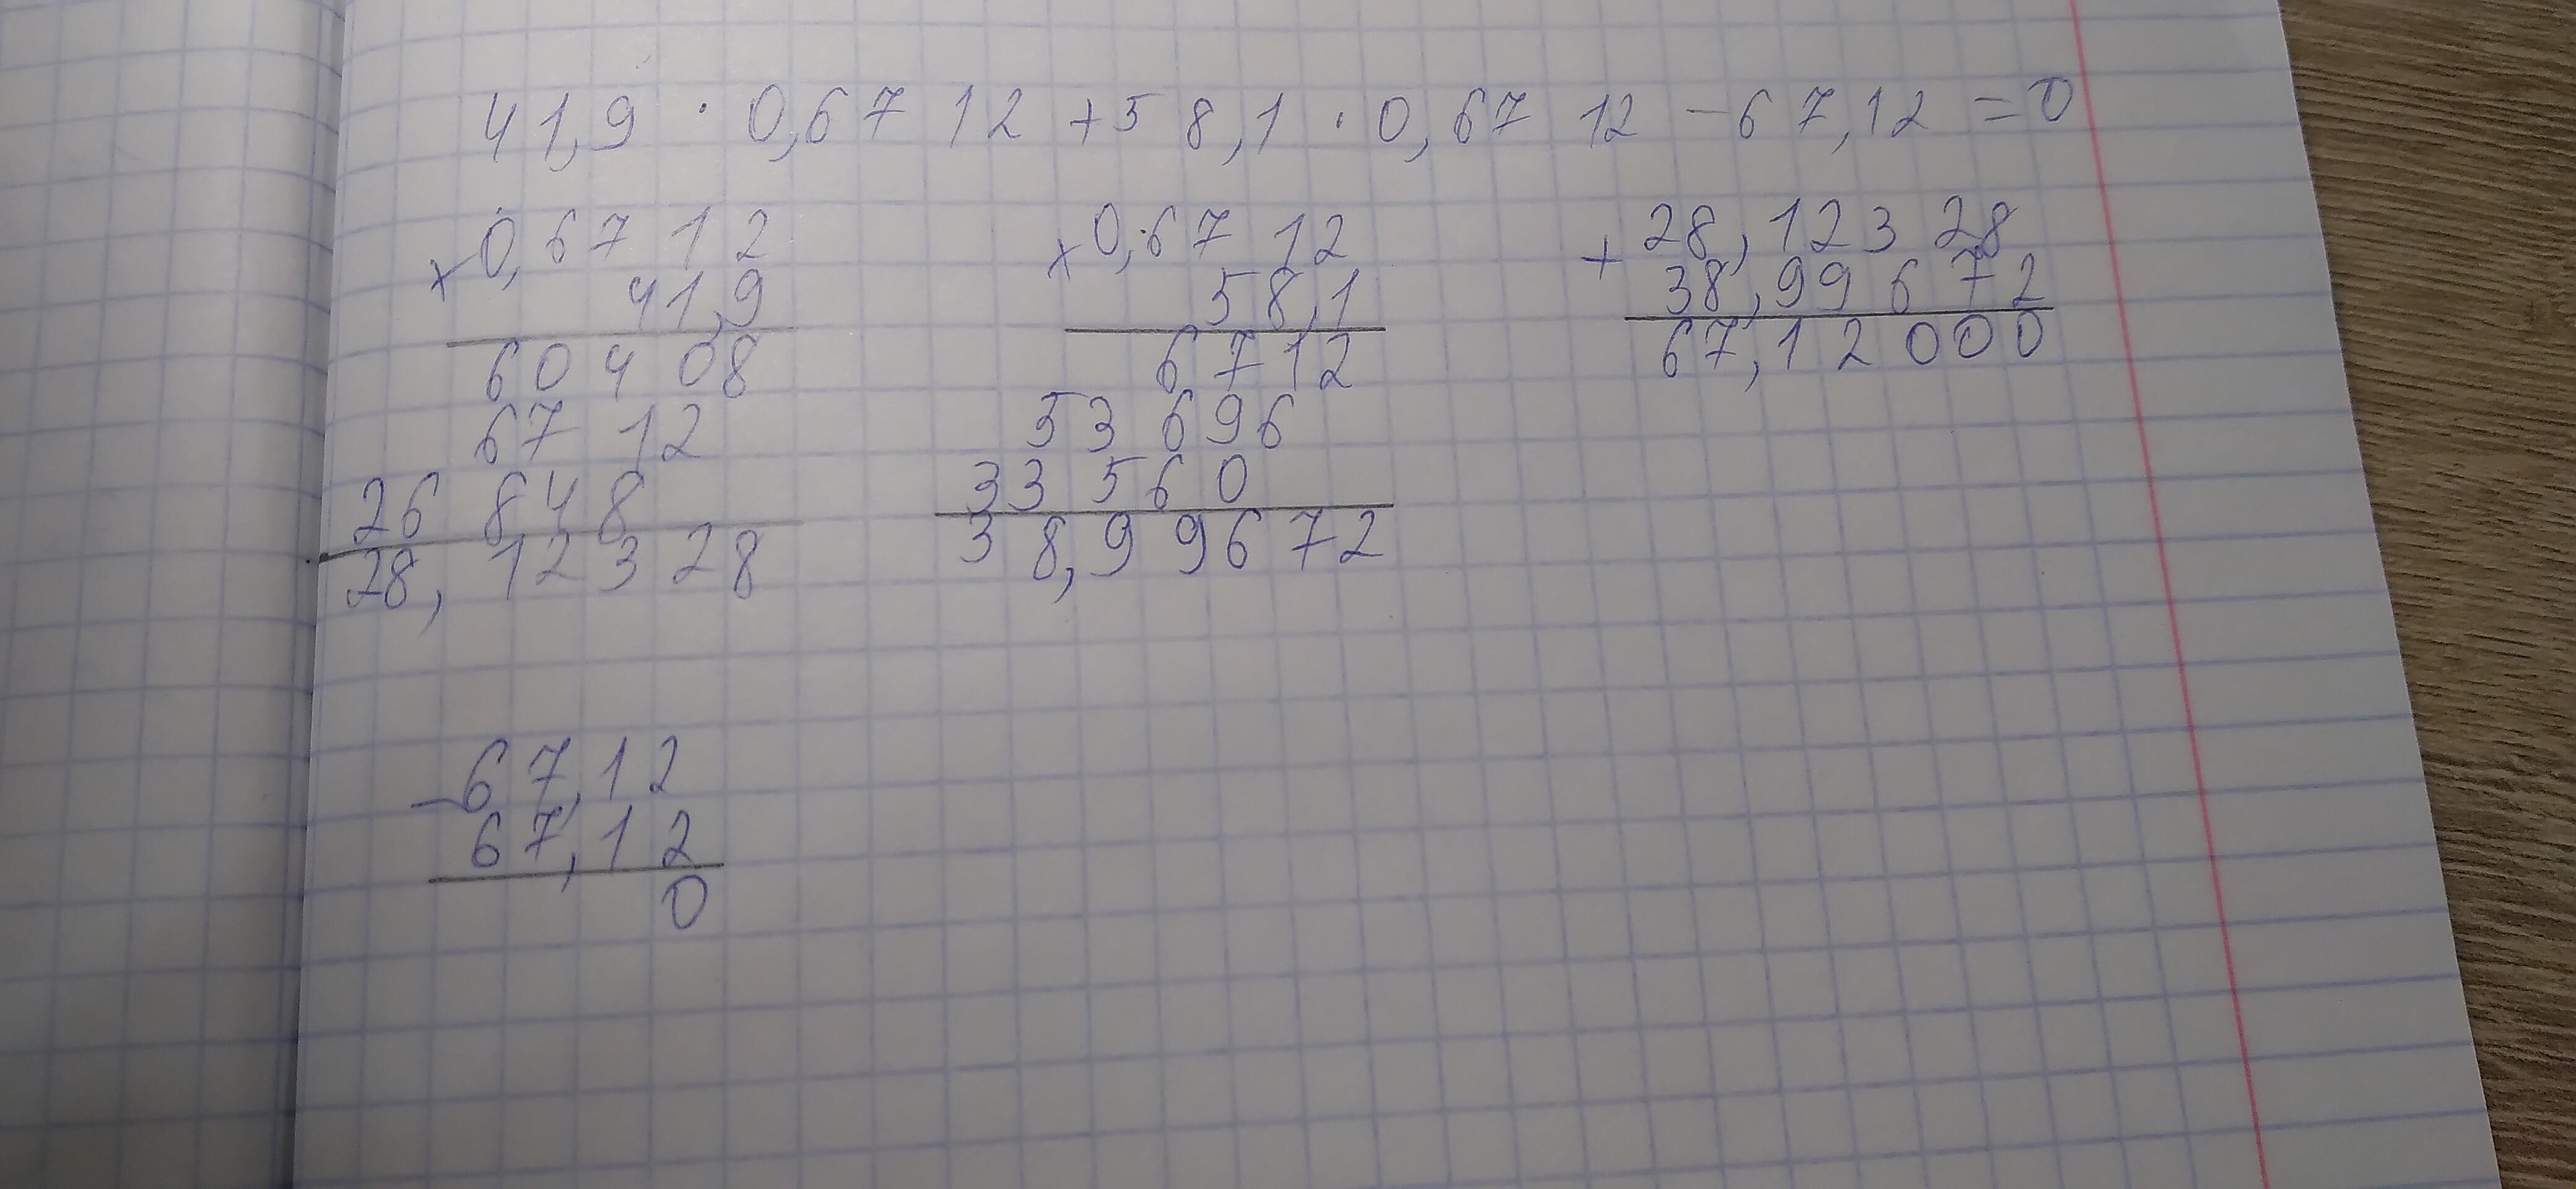 41,9 · 0,6712 + 58,1 · 0,6712 - 67,12 = 0
× 0,6712
41,9
60408
6712
26848
28,12328
× 0,6712
58,1
6712
53696
33560
38,99672
+ 28,12328
38,99672
67,12000
- 67,12
67,12
0